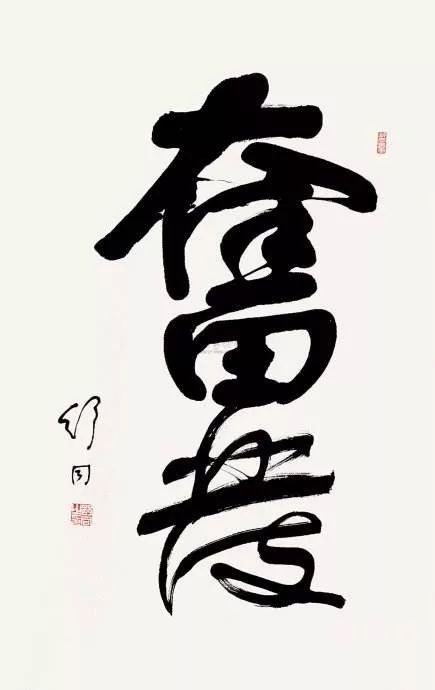 奮發
舒同